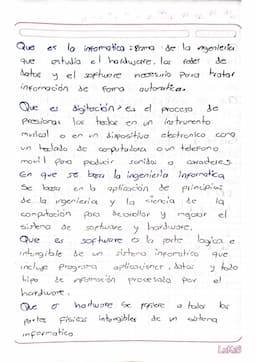 Que es la informatica: Rama de la ingenieria
que estudia el hardware, las redes de
datos y el software necesario para tratar
información de forma automatica.
Que es digitación: es el proceso de
presionar las teclas en un instrumento
musical o en un dispositivo electronico como
un teclado de computadora o un telefono
movil para producir sonidos o caracteres.
En que se basa la ingenieria informatica
Se basa en la aplicación de principios
de la ingenieria y la ciencia de la
computación para desarrollar y mejorar el
sistema de software y hardware.
Que es software es la parte logica e
intangible de un sistema informatico que
incluye programa aplicaciones, datos y todo
tipo de información procesada por el
hardware.
Que es hardware se refiere a todas las
partes fisicas intangibles de un sistema
informatico